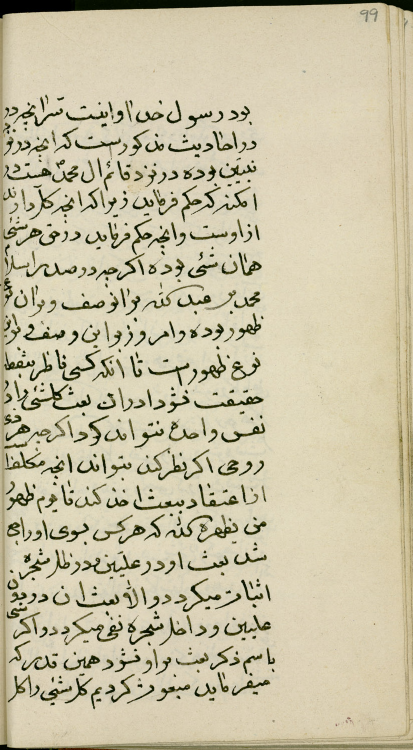 99
بود رسول خدا و اینست سرّ آنچه در
در احادیث مذکور است که آنچه در نزد
نبیین بوده در نزد قائم آل محمد هست
حکم فرماید زیرا که آنچه کل دارند
از اوست و آنچه حکم فرماید در حق هر شئ
همان شئ بوده اگر چه در صدر اسلام
محمد بن عبد الله بر آن وصف و بر آن نوع
ظهور بوده و امروز بر این وصف و بر این
نوع ظهور است تا آنکه کسی ناظر بنقطه
حقیقت نشود ادراک بعث کلشئ را در
نفس واحده نتواند کرد اگر چه هر ذی
روحی اگر نظر کند بتواند آنچه مکلف است
از اعتقاد ببعث اخذ کند تا یوم ظهور
من یظهره الله که هر کس بسوی او راجع
شد بعث او در علیین و در ظل شجره
اثبات میگردد و الا بعث آن در دون
علیین و داخل شجره نفی میگردد و اگر شئ
باسم ذکر بعث بر او نشود همین قدر که
میفرماید مبعوث کردیم کلشئ را کل